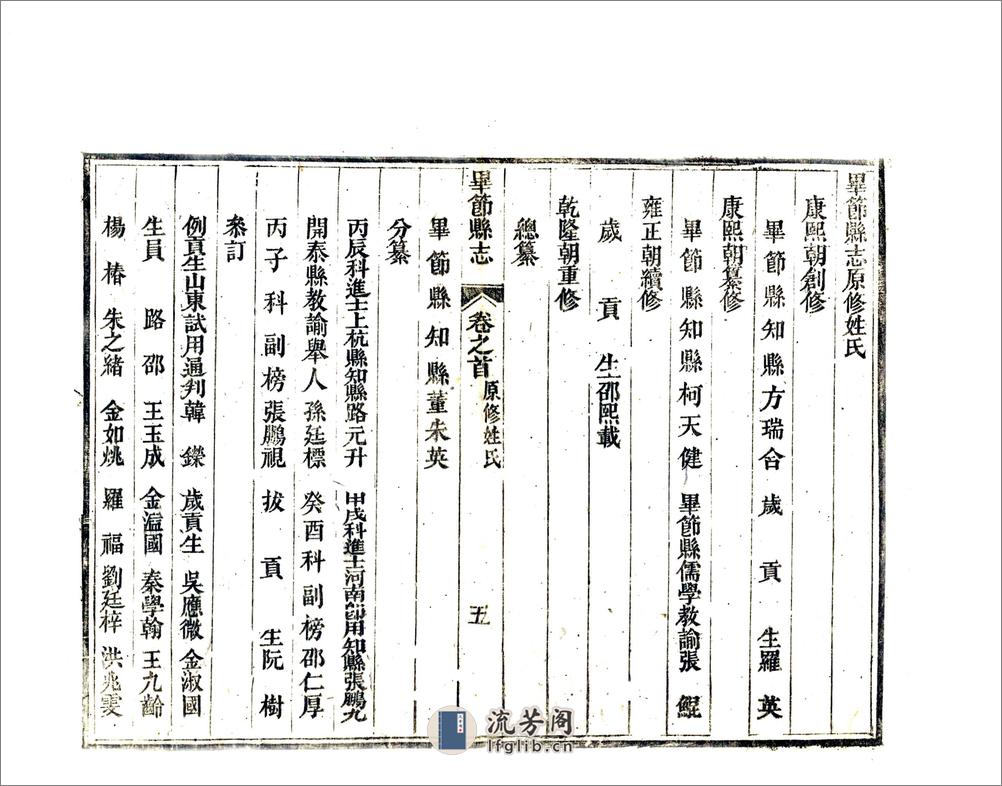 畢節縣志原修姓氏
康熙朝創修
畢節縣知縣方瑞合 歲貢生羅英
康熙朝纂修
畢節縣知縣柯天健 畢節縣儒學教諭張鯤
雍正朝續修
歲貢生邵熙載
乾隆朝重修
總纂
畢節縣志 卷之首 原修姓氏 五
畢節縣知縣董朱英
分纂
丙辰科進士上杭縣知縣路元升 甲戌科進士河南即用知縣張鵬九
開泰縣教諭舉人孫廷標 癸酉科副榜邵仁厚
丙子科副榜張鵬視 拔貢生阮樹
叅訂
例貢生山東試用通判韓鑅 歲貢生吳應微 金淑國
生員路邵 王玉成 金溋國 秦學翰 王九齡
楊椿 朱之緒 金如烑 羅福 劉廷梓 洪兆雯
流芳阁
lfglib.cn